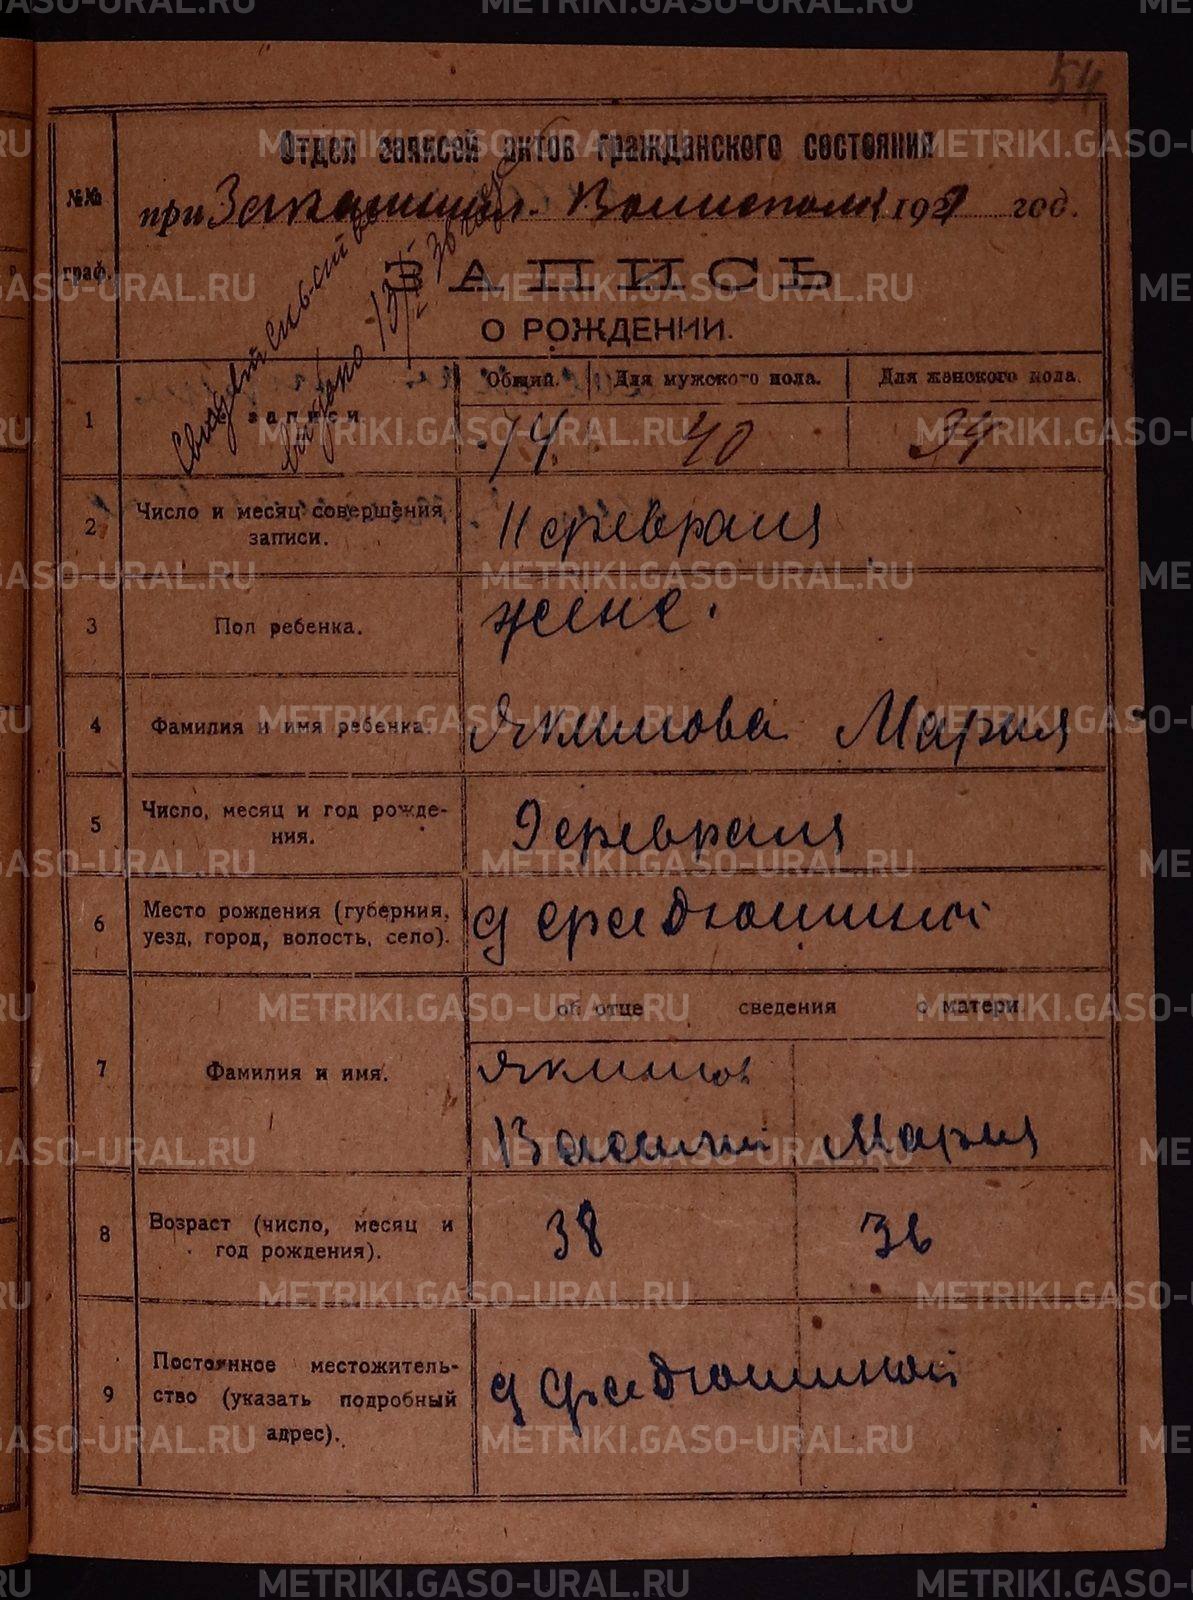 54
Отдел записей актов гражданского состояния
№№ граф.
при Волисполк 192 год.
ЗАПИСЬ
О РОЖДЕНИИ.
выдано 13/I 36 года
1 записи
Общий. Для мужского пола. Для женского пола.
74 40 34
2 Число и месяц совершения записи.
11 февраля
3 Пол ребенка.
женс.
4 Фамилия и имя ребенка.
Якимова Мария
5 Число, месяц и год рождения.
9 февраля
6 Место рождения (губерния, уезд, город, волость, село).
д
об отце сведения о матери
7 Фамилия и имя.
Якимов
Василий Мария
8 Возраст (число, месяц и год рождения).
38 36
9 Постоянное местожительство (указать подробный адрес).
д
METRIKI.GASO-URAL.RU